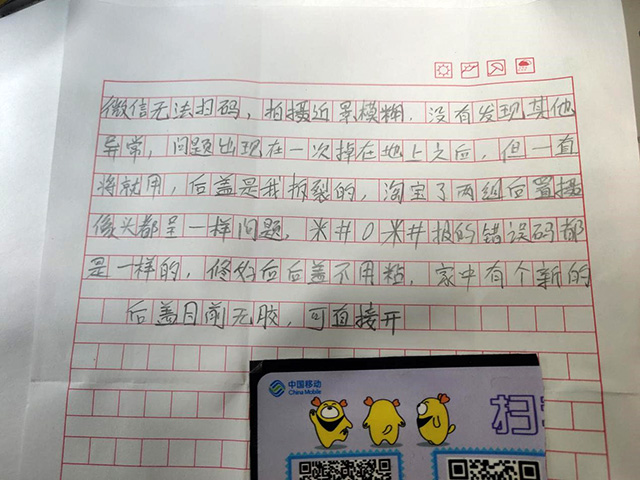 微信无法扫码，拍摄近景模糊，没有发现其他
异常，问题出现在一次掉在地上之后，但一直
将就用，后盖是我拆裂的，淘宝了两组后置摄
像头都呈一样问题，米井0米井报的错误码都
是一样的，修好后后盖不用粘，家中有个新的
后盖目前无胶，可直接开
中国移动
China Mobile
扫